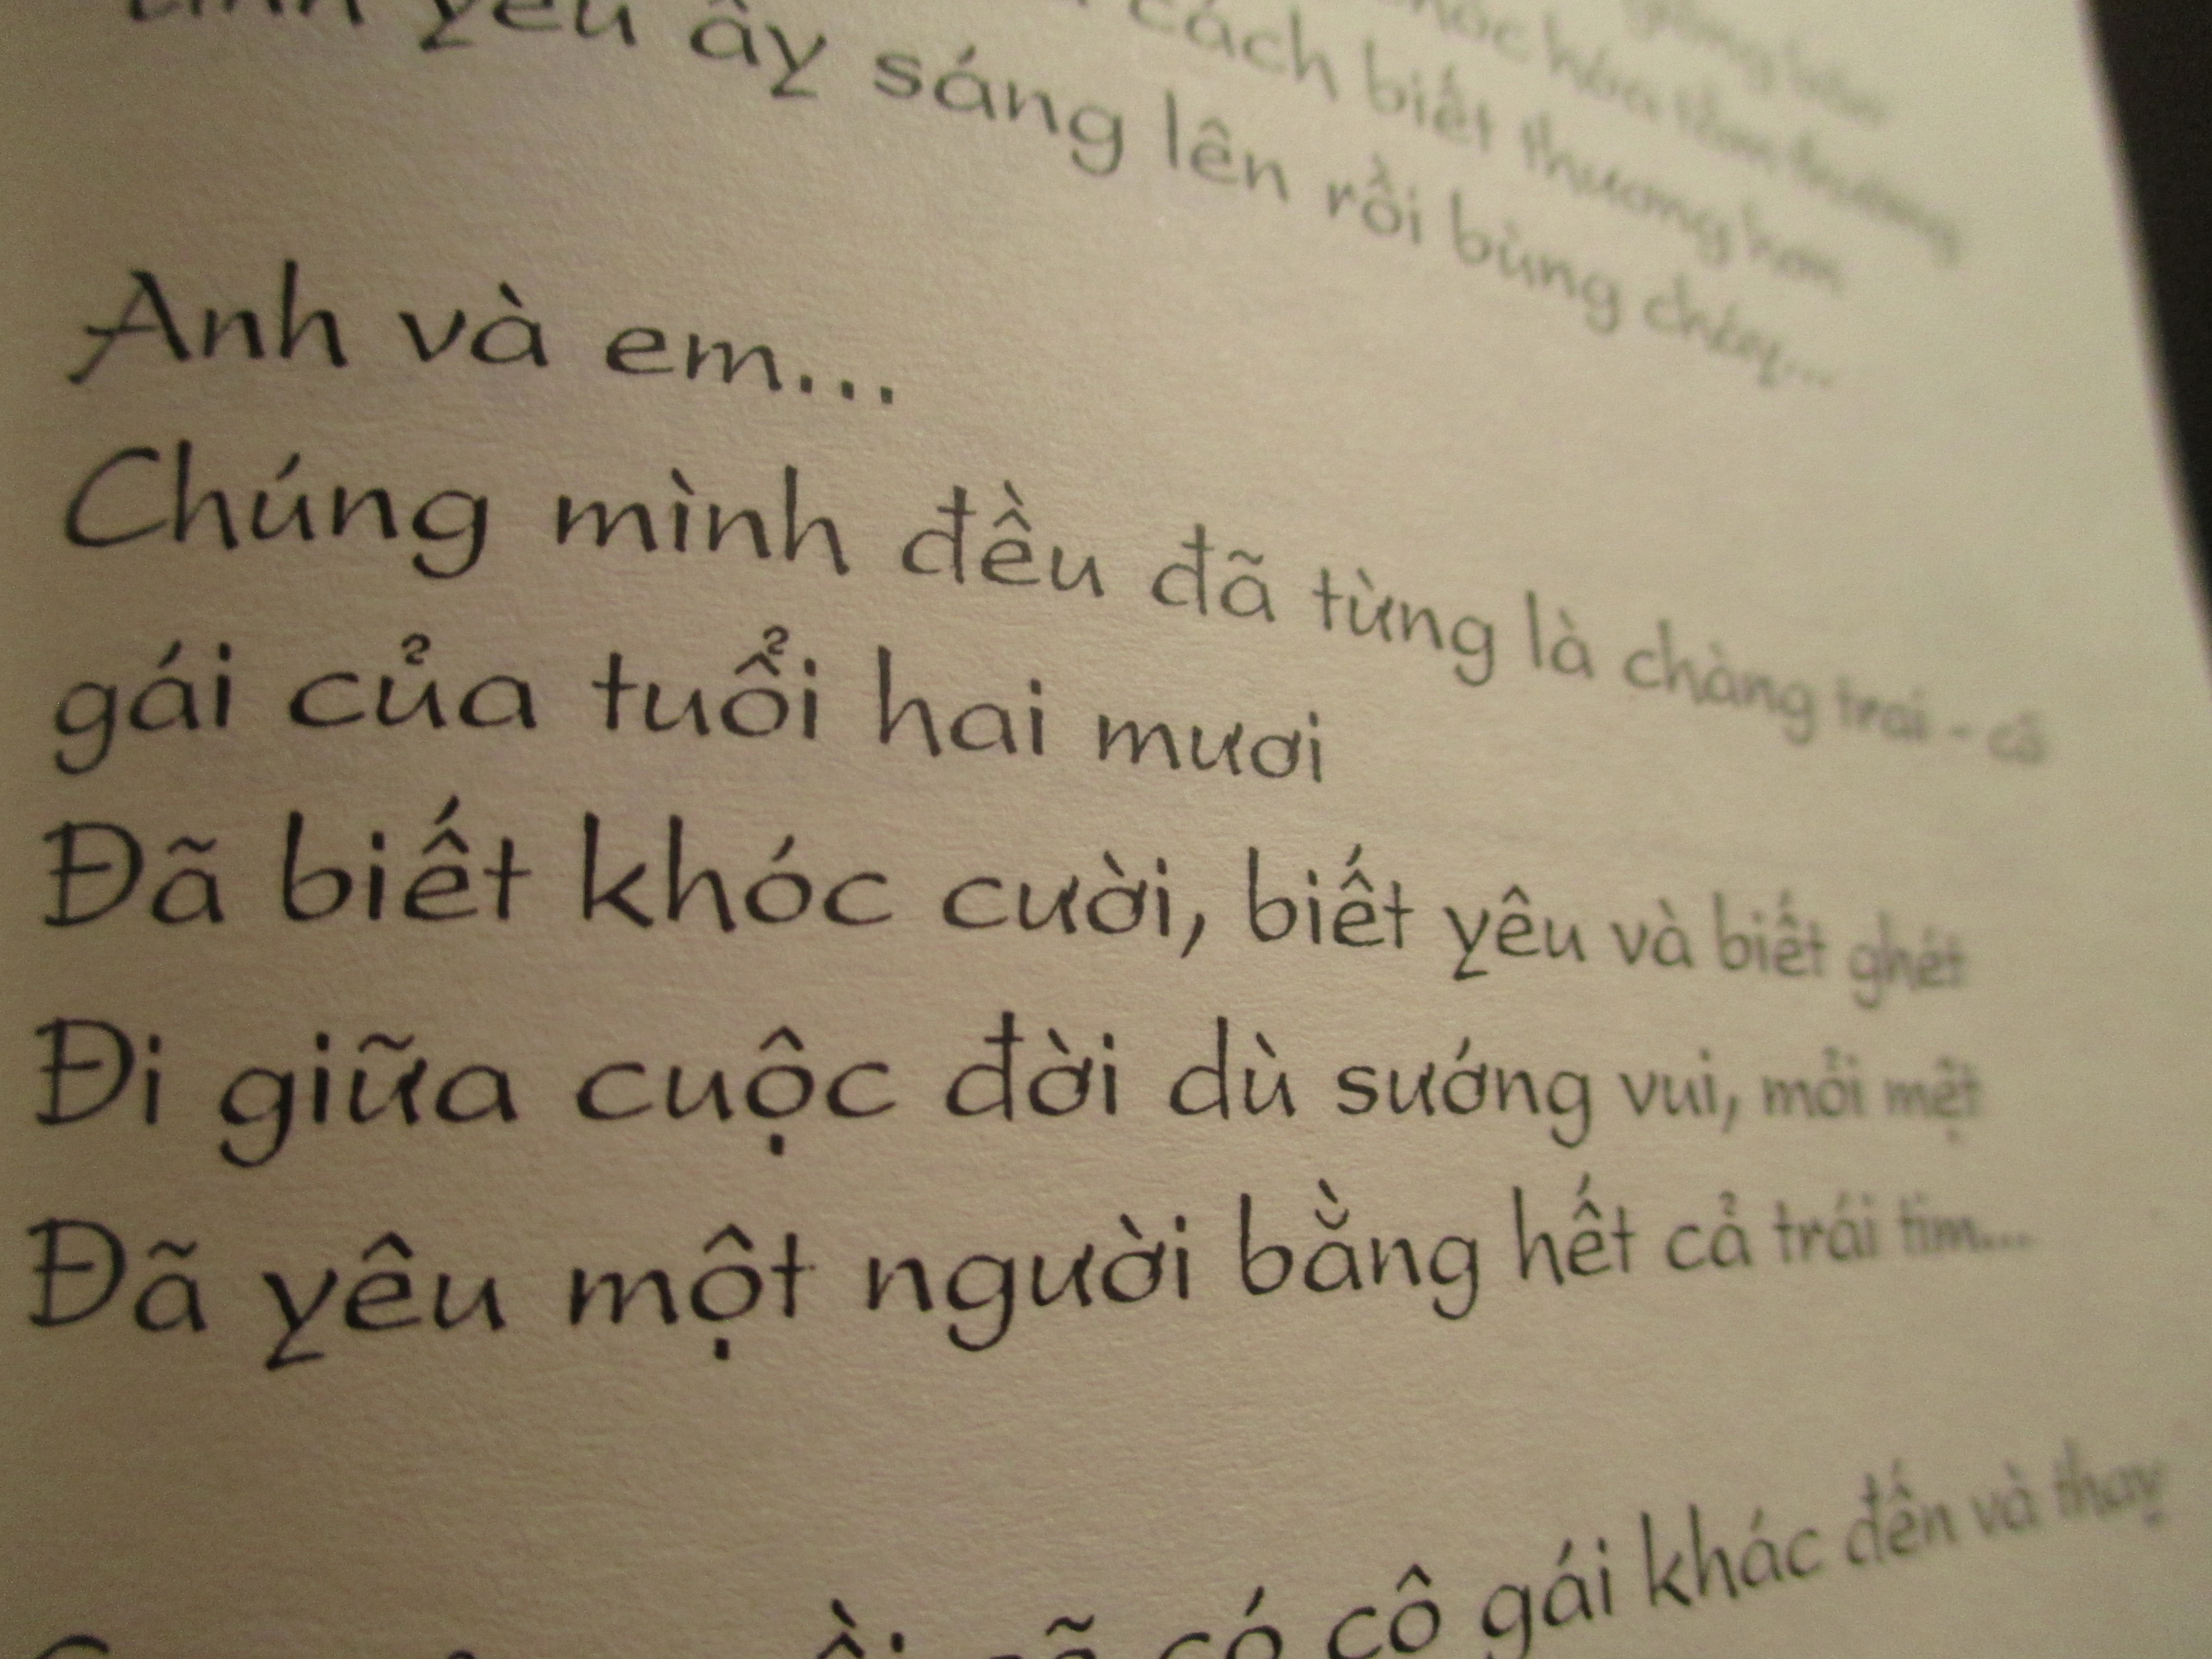 cách biết thương hơn
yêu ấy sáng lên rồi bùng cháy...
Anh và em...
Chúng mình đều đã từng là chàng trai - cô
gái của tuổi hai mươi
Đã biết khóc cười, biết yêu và biết ghét
Đi giữa cuộc đời dù sướng vui, mỏi mệt
Đã yêu một người bằng hết cả trái tim...
có cô gái khác đến và thay